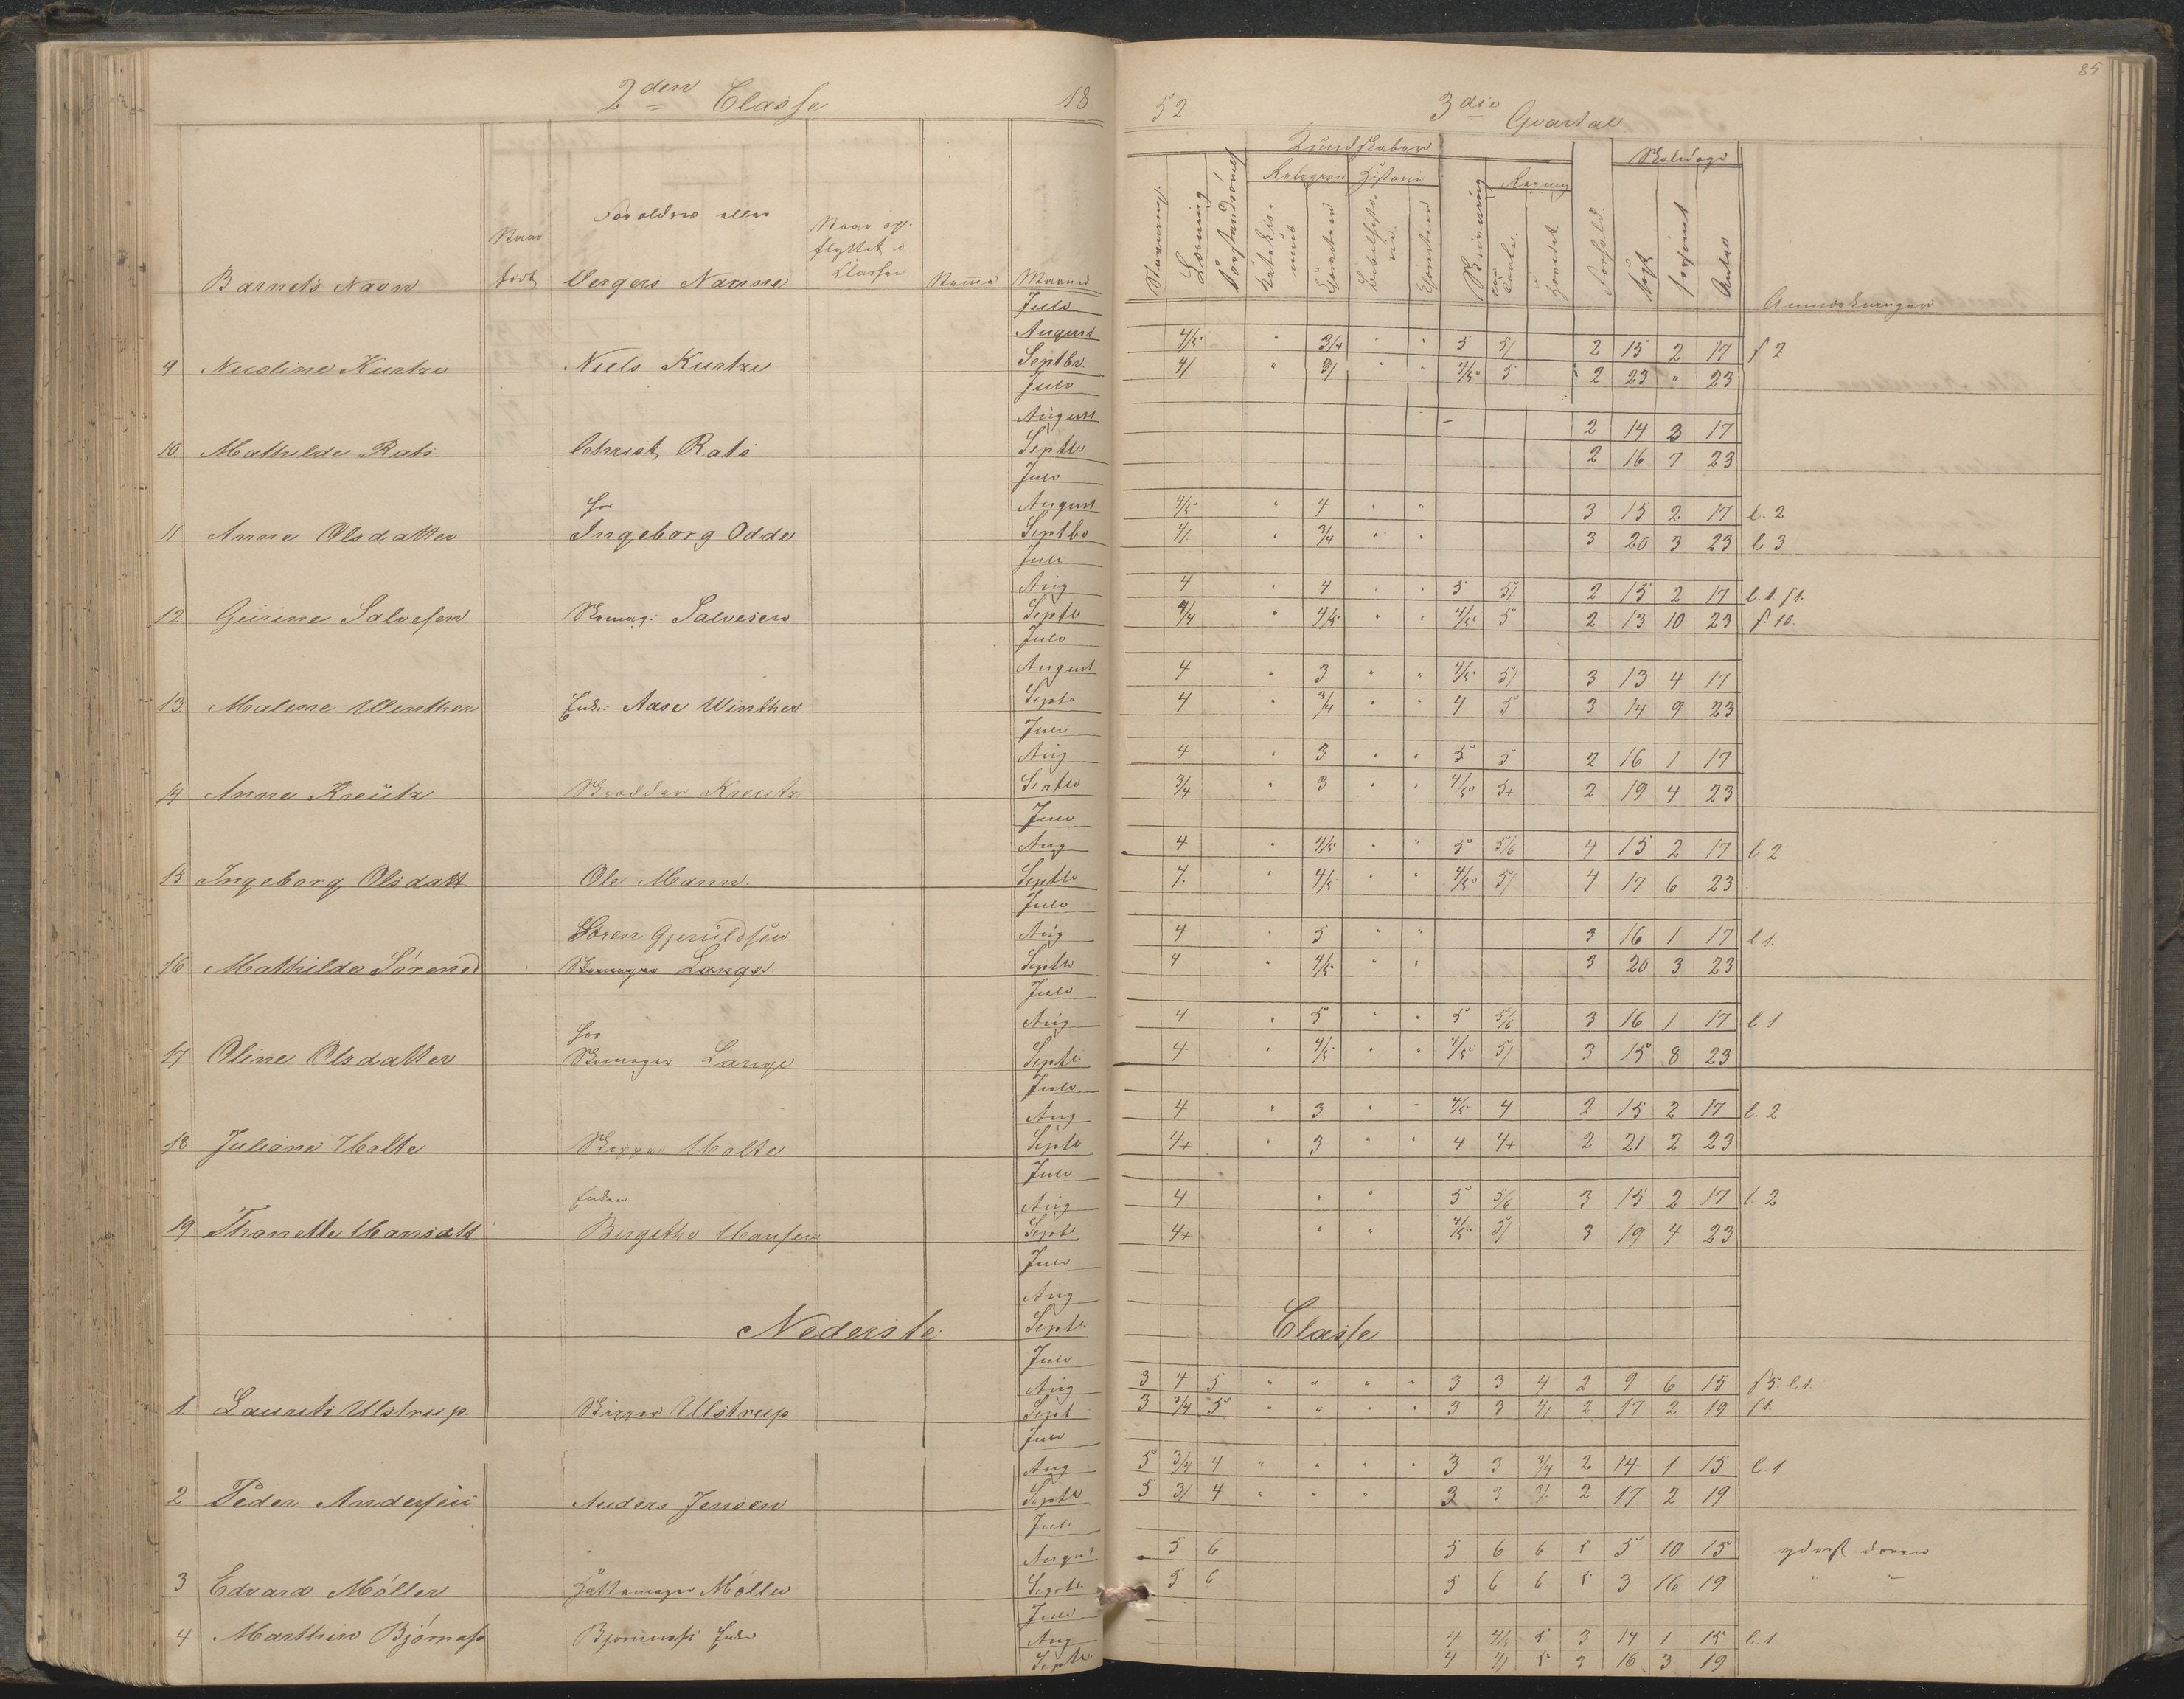 2den Classe 18
52 3die Qvartal
85
Kundskaber
Skoledage
Religion Historie
Regning
Barnets Navn
Naar
født
Forældres eller
Verges Navne
Naar op-
flyttet i
Classen
Maaned
Stavning
Læsning
Katekis-
mus
Skrivning
Forhold
Anmærkninger
Juli
August 4/5 " 3/4 " " 5 5/ 2 15 2 17 f 2
9 Nicoline Kurtze Niels Kurtze Septbr. 4/ " 3/ " " 4/5 5 2 23 " 23
Juli
August 2 14 3 17
10. Mathilde Rats Christ. Rats Septbr 2 16 7 23
Juli
hos August 4/5 " 4 " " 3 15 2 17 l. 2
11 Anne Olsdatter Ingeborg Odde Septbr 4/ " 3/4 " " 3 20 3 23 l 3
Juli
Aug 4 " 4 " " 5 5/ 2 15 2 17 l.1 f1.
12 Gurine Salvesen Salvesen Septb 4/4 " 4/5 " " 4/5 5 2 13 10 23 f. 10.
Juli
August 4 " 3 " " 4/5 5/ 3 13 4 17
13 Malene Winther Enke: Aase Winther Septb 4 " 3/4 " " 4 5 3 14 9 23
Juli
Aug 4 " 3 " " 5 5 2 16 1 17
14 Anne Kreutz Kreutz Septbr 3/4 " 3 " " 4/5 5+ 2 19 4 23
Juli
Aug 4 " 4/5 " " 5 5/6 4 15 2 17 l 2
15 Ingeborg Olsdatt Ole Mann. Septbr 4. " 4/5 " " 4/5 5/ 4 17 6 23
Juli
Søren Gjeruldsen Aug 4 " 5 " " 3 16 1 17 l.1.
16 Mathilde Sørensd Skomager Lange Septbr 4 " 4/5 " " 3 20 3 23
Juli
hos Aug 4 " 5 " " 5 5/6 3 16 1 17 l.1
17 Oline Olsdatter Skomager Lange Septb. 4 " 4/5 " " 4/5 5/ 3 15 8 23
Juli
Aug 4 " 3 " " 4/5 4 2 15 2 17 l. 2
18 Juliane Holte Skipper Holte Septb 4+ " 3 " " 4 4+ 2 21 2 23
Juli
Enken Aug 4 " " 5 5/6 3 15 2 17 l. 2
19 Thonette Hansdtt Birgithe Hansen Septb 4+ " " 4/5 5/ 3 19 4 23
Juli
Aug
Nederste Septb. Classe
Juli
Aug 3 4 5 " " " " 3 3 4 2 9 6 15 f5. l1.
1. Laurits Ulstrup. Skipper Ulstrup Sept 3 3/4 5 " " " " 3 3 4/ 2 17 2 19 f1.
Juli
Aug 5 3/4 4 " " " " 3 3 3/4 2 14 1 15 l.1
2 Peder Andersen Anders Jensen Septb 5 3/ 4 " " " " 3 3 3/ 2 17 2 19
Juli
August 5 6 5 6 6 5 5 10 15
3 Edvard Møller Hattemager Møller Septb. 5 6 5 6 6 5 3 16 19 " "
Juli
4 Marthin Bjørnass Bjørnnass Enke Aug 4 4/5 5 3 14 1 15 l.1.
Septb. 4 4/ 5 3 16 3 19